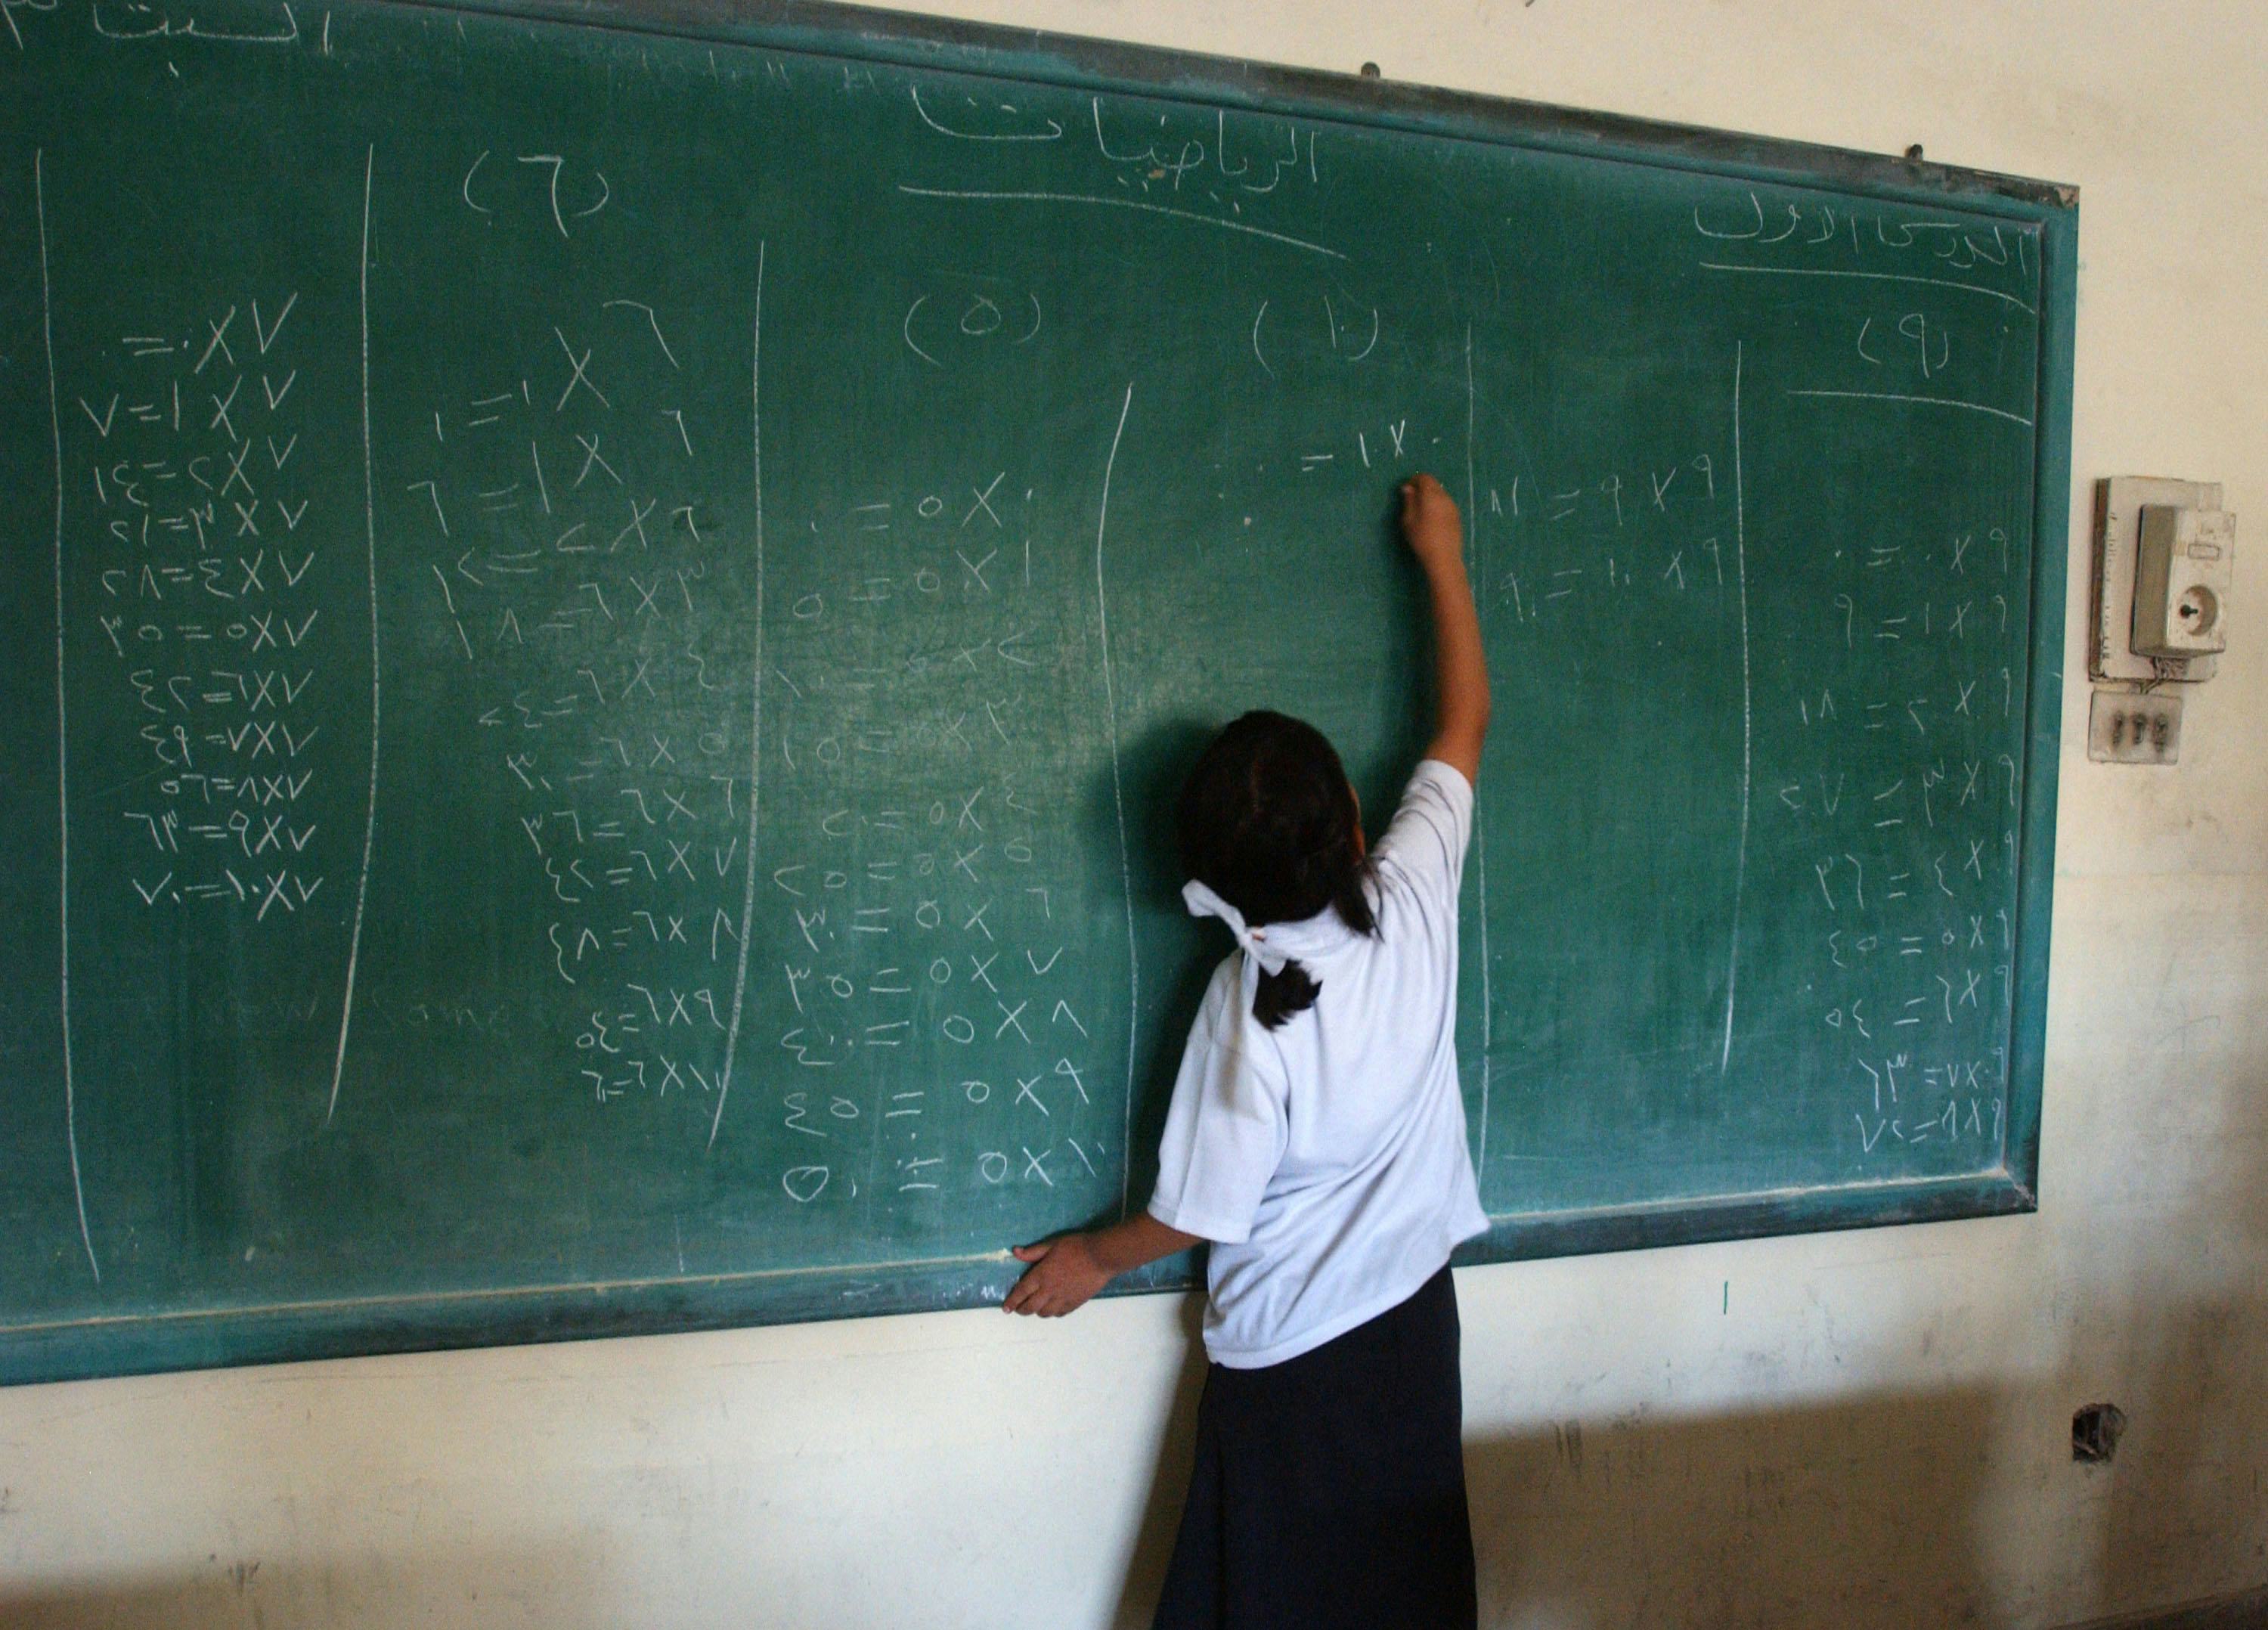 السبت ٣
الرياضيات
الدرس الاول
(٩)
٩ × ٠ = ٠
٩ × ١ = ٩
٩ × ٢ = ١٨
٩ × ٣ = ٢٧
٩ × ٤ = ٣٦
٩ × ٥ = ٤٥
٩ × ٦ = ٥٤
٩ × ٧ = ٦٣
٩ × ٨ = ٧٢
٩ × ٩ = ٨١
٩ × ١٠ = ٩٠
(١٠)
٠ × ١٠ =
(٥)
٠ × ٥ = ٠
١ × ٥ = ٥
٢ × ٥ = ١٠
٣ × ٥ = ١٥
٤ × ٥ = ٢٠
٥ × ٥ = ٢٥
٦ × ٥ = ٣٠
٧ × ٥ = ٣٥
٨ × ٥ = ٤٠
٩ × ٥ = ٤٥
١٠ × ٥ = ٥٠
(٦)
٦ × ٠ = ٠
٦ × ١ = ٦
٦ × ٢ = ١٢
٣ × ٦ = ١٨
٤ × ٦ = ٢٤
٥ × ٦ = ٣٠
٦ × ٦ = ٣٦
٧ × ٦ = ٤٢
٨ × ٦ = ٤٨
٩ × ٦ = ٥٤
١٠ × ٦ = ٦٠
٧ × ٠ = ٠
٧ × ١ = ٧
٧ × ٢ = ١٤
٧ × ٣ = ٢١
٧ × ٤ = ٢٨
٧ × ٥ = ٣٥
٧ × ٦ = ٤٢
٧ × ٧ = ٤٩
٧ × ٨ = ٥٦
٧ × ٩ = ٦٣
٧ × ١٠ = ٧٠